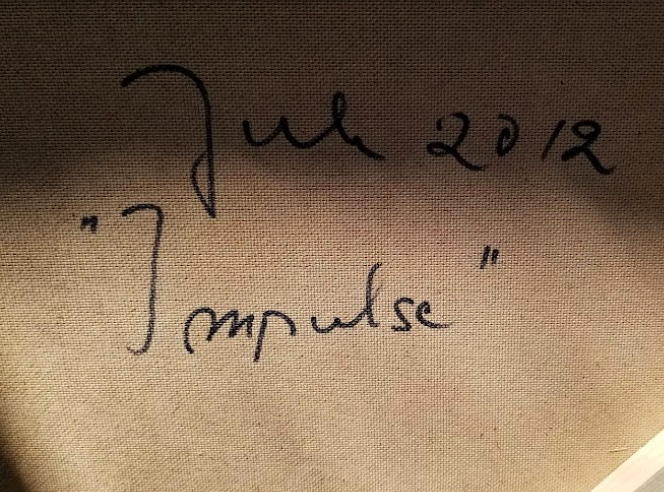 Juli 2012
"Impulse"